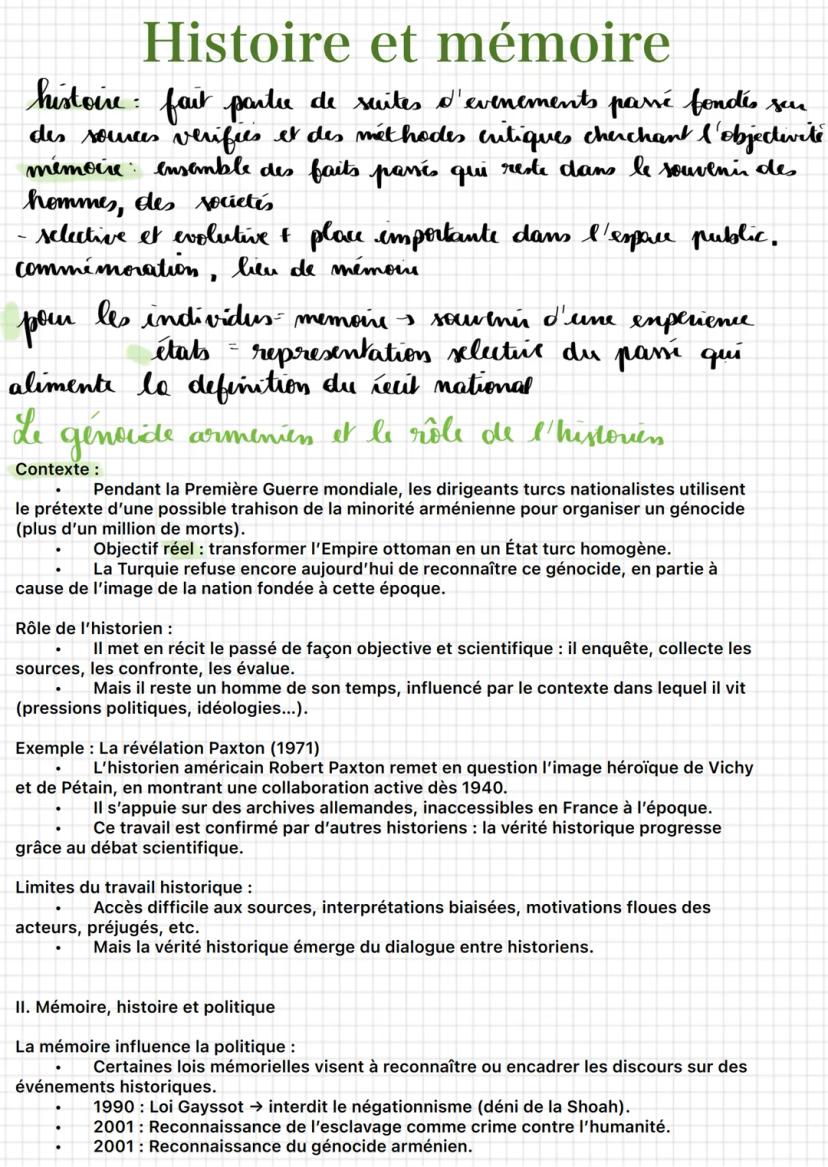 Histoire et mémoire
histoire : fait partie de suites d'evenements passé fondés sur
des sources vérifiés et des méthodes critiques cherchant l'objectivité
mémoire : ensemble des faits passés qui reste dans le souvenir des
hommes, des societés
- selective et evolutive + place importante dans l'espace public.
commémoration, lieu de mémoire
pour les individus = memoire → souvenir d'une experience
états = representation selective du passé qui
alimente la definition du récit national
Le génocide armenien et le rôle de l'historien
Contexte :
• Pendant la Première Guerre mondiale, les dirigeants turcs nationalistes utilisent
le prétexte d'une possible trahison de la minorité arménienne pour organiser un génocide
(plus d'un million de morts).
• Objectif réel : transformer l'Empire ottoman en un État turc homogène.
• La Turquie refuse encore aujourd'hui de reconnaître ce génocide, en partie à
cause de l'image de la nation fondée à cette époque.
Rôle de l'historien :
• Il met en récit le passé de façon objective et scientifique : il enquête, collecte les
sources, les confronte, les évalue.
• Mais il reste un homme de son temps, influencé par le contexte dans lequel il vit
(pressions politiques, idéologies...).
Exemple : La révélation Paxton (1971)
• L'historien américain Robert Paxton remet en question l'image héroïque de Vichy
et de Pétain, en montrant une collaboration active dès 1940.
• Il s'appuie sur des archives allemandes, inaccessibles en France à l'époque.
• Ce travail est confirmé par d'autres historiens : la vérité historique progresse
grâce au débat scientifique.
Limites du travail historique :
• Accès difficile aux sources, interprétations biaisées, motivations floues des
acteurs, préjugés, etc.
• Mais la vérité historique émerge du dialogue entre historiens.
II. Mémoire, histoire et politique
La mémoire influence la politique :
• Certaines lois mémorielles visent à reconnaître ou encadrer les discours sur des
événements historiques.
• 1990 : Loi Gayssot → interdit le négationnisme (déni de la Shoah).
• 2001 : Reconnaissance de l'esclavage comme crime contre l'humanité.
• 2001 : Reconnaissance du génocide arménien.